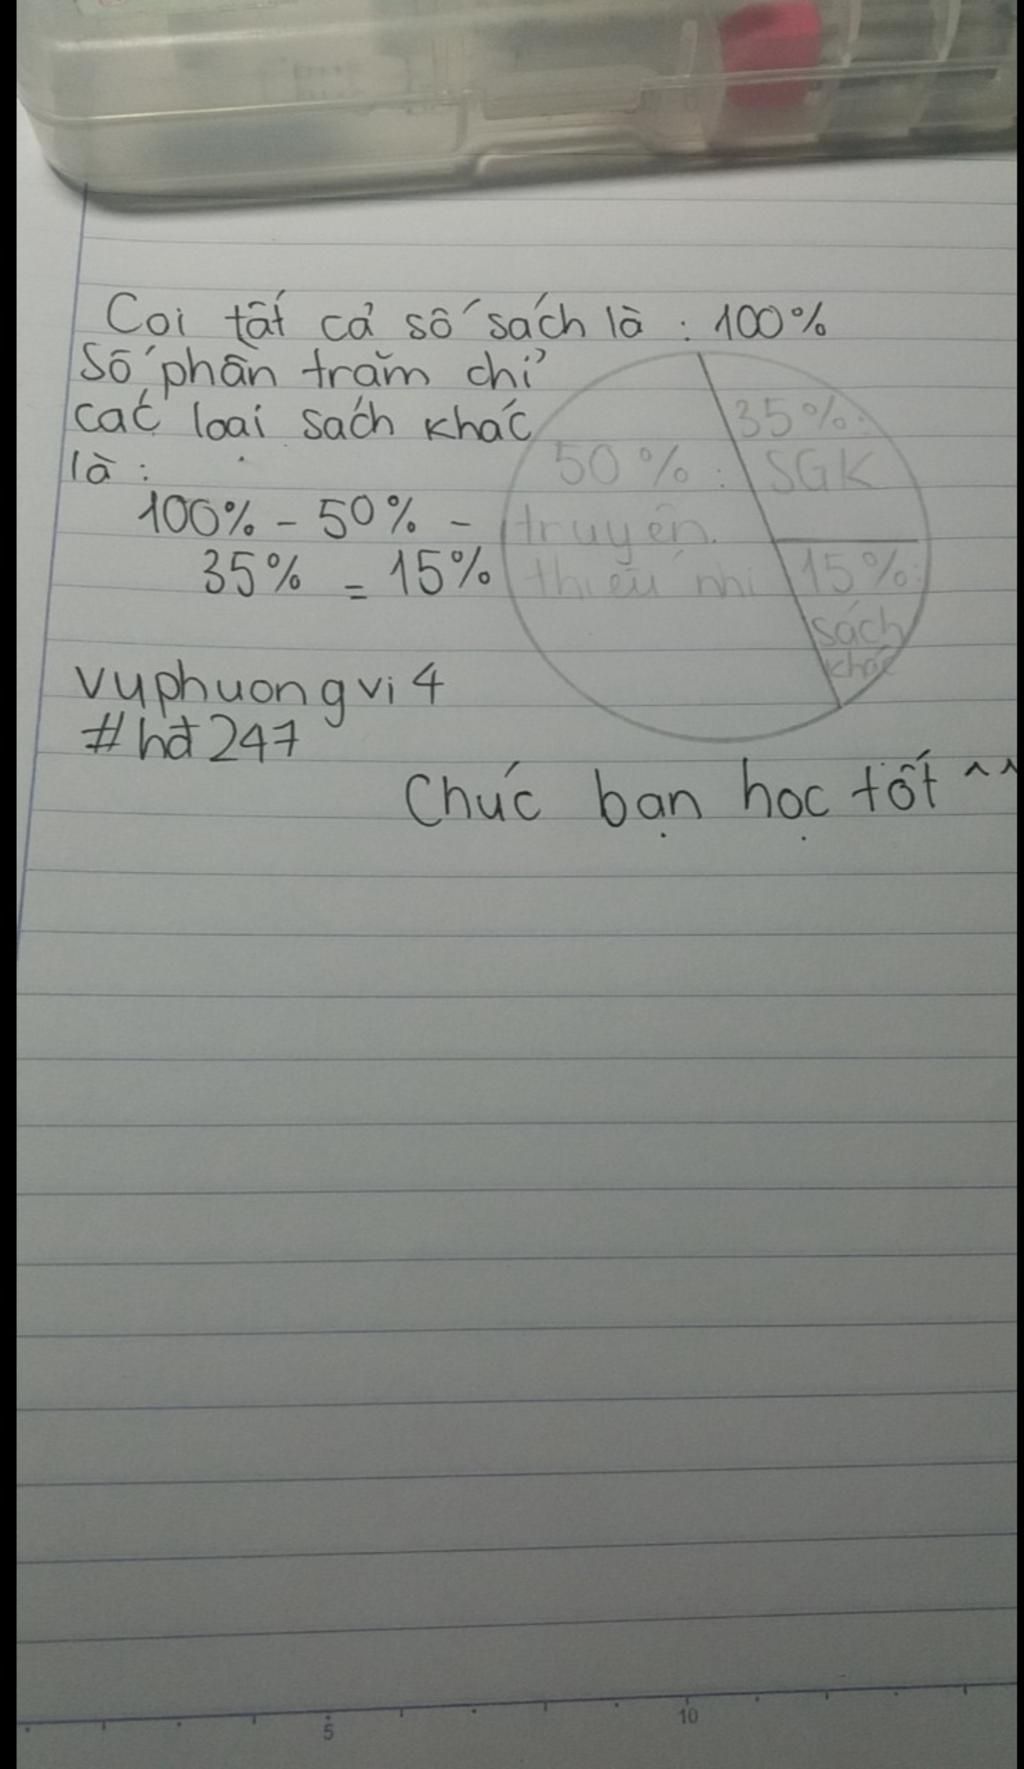 Coi tất cả số sách là : 100%
Số phần trăm chỉ
các loại sách khác
là :
100% - 50% -
35% = 15%
50% :
truyện
thiếu nhi
35% :
SGK
15% :
sách
khác
vyphuongvi4
#hđ247
Chúc bạn học tốt ^^
5
10